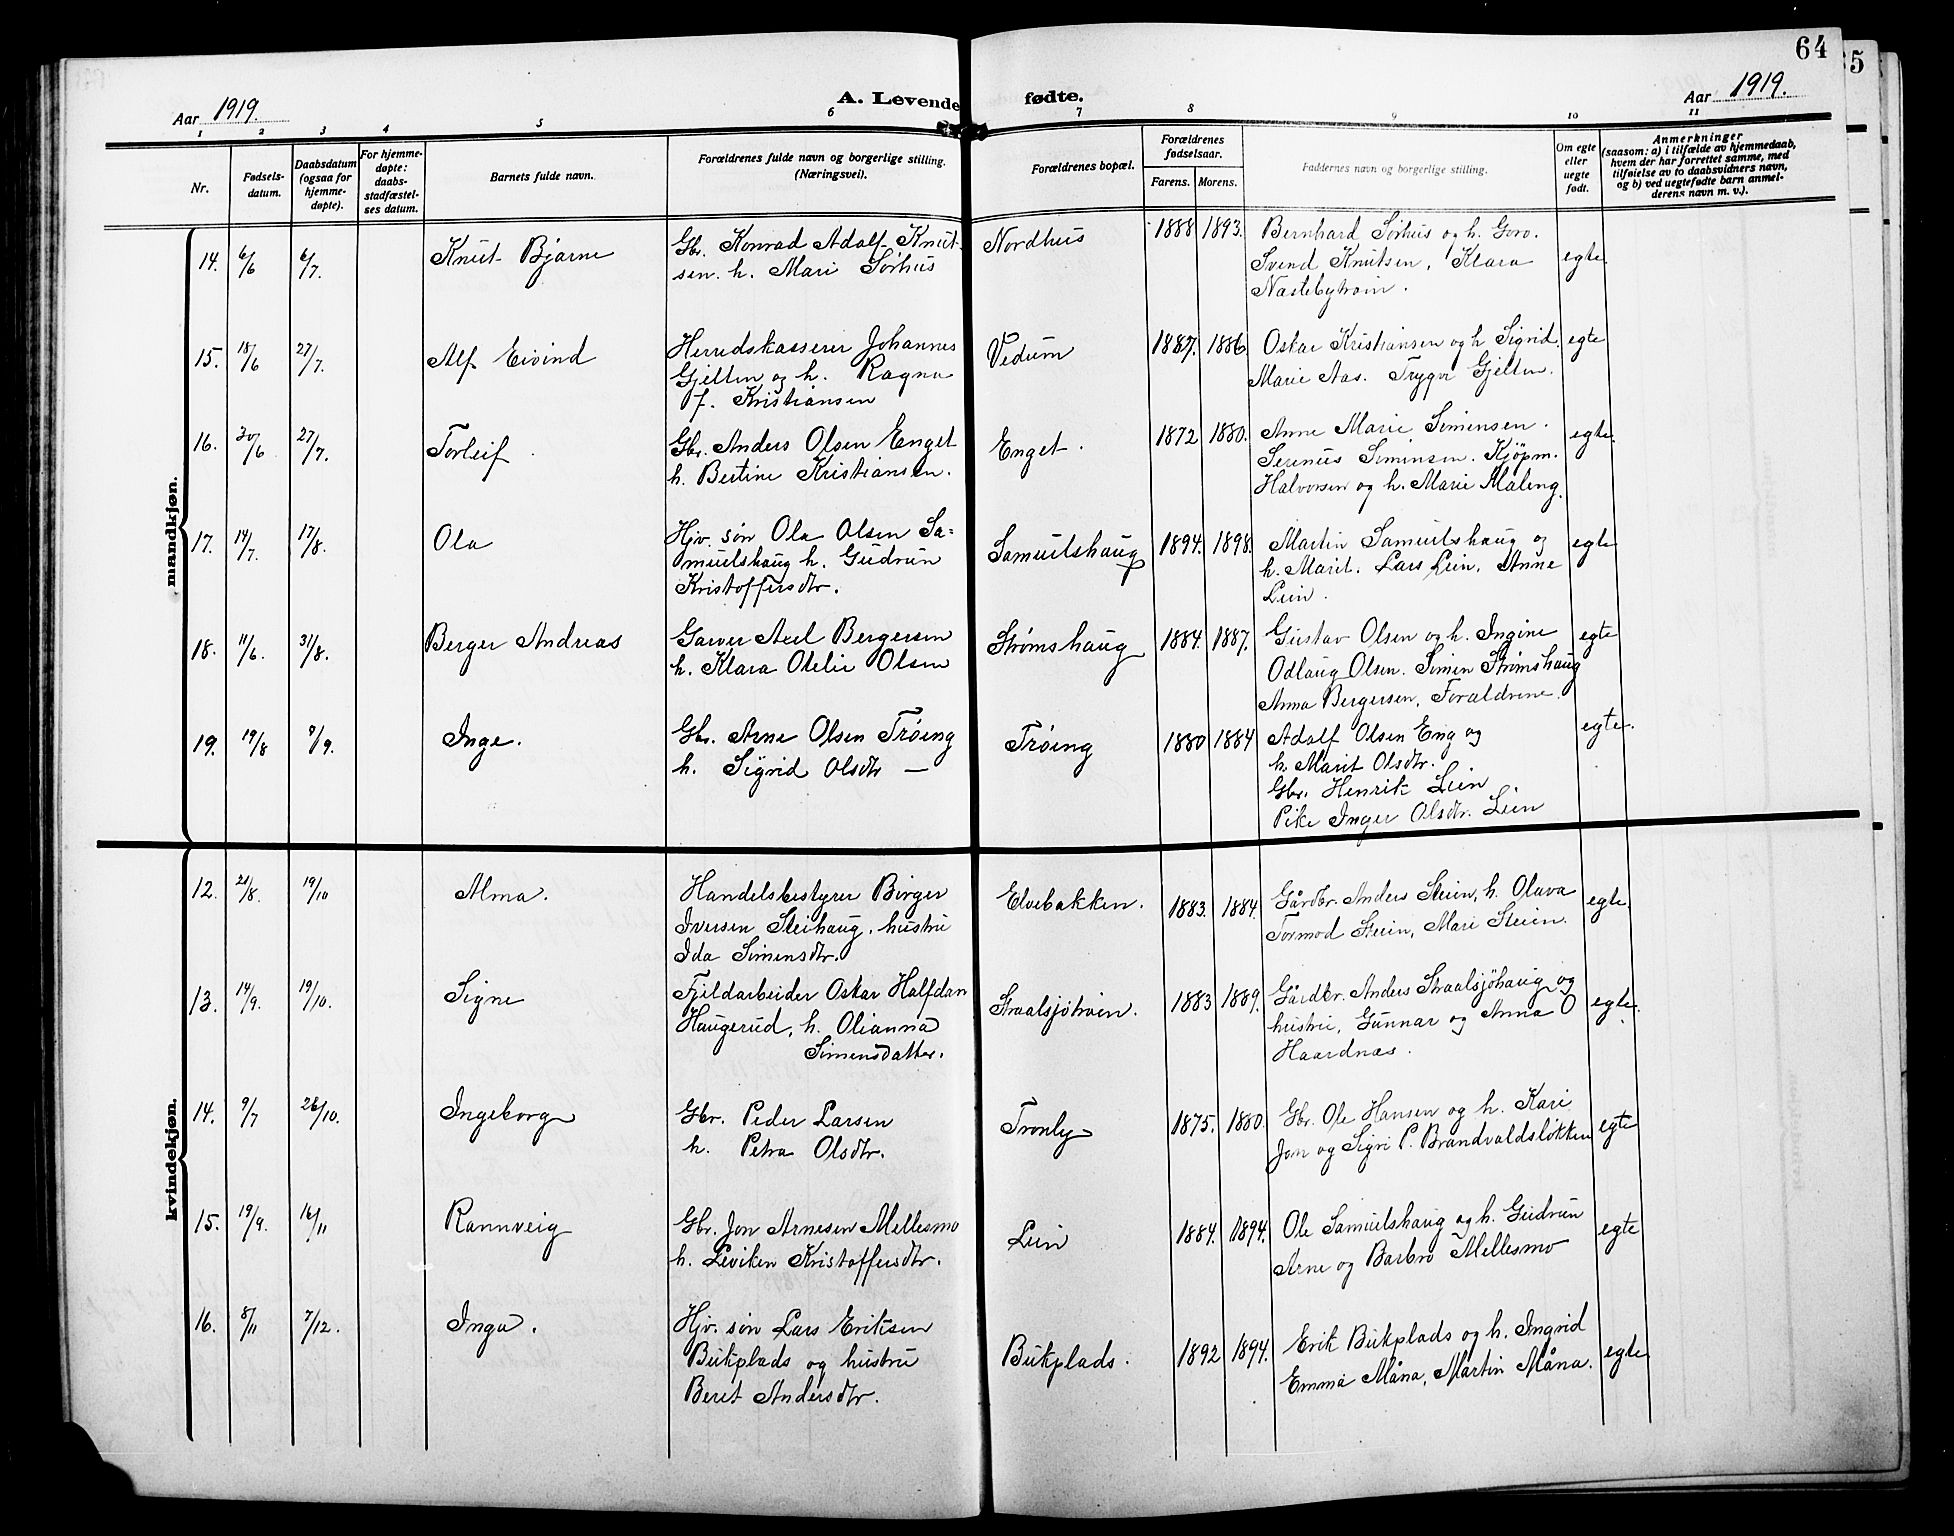 64
5
Aar 1919.
A. Levende fødte.
Aar 1919.
1 2 3 4 5 6 7 8 9 10 11
Nr.
Fødsels-
datum.
Daabsdatum
(ogsaa for
hjemme-
døpte).
For hjemme-
døpte:
daabs-
stadfæstel-
ses datum.
Barnets fulde navn.
Forældrenes fulde navn og borgerlige stilling.
(Næringsvei).
Forældrenes bopæl.
Forældrenes
fødselsaar.
Farens. Morens.
Faddernes navn og borgerlige stilling.
Om egte
eller
uegte
født.
Anmerkninger
(saasom: a) i tilfælde av hjemmedaab,
hvem der har forrettet samme, med
tilføielse av to daabsvidners navn,
og b) ved uegtefødte barn anmel-
derens navn m. v.).
mandkjøn.
14. 6/6 6/7. Knut Bjarne
Gbr. Konrad Adolf Knut-
sen. h. Mari Sørhus
Nordhus 1888 1893.
Bernhard Sørhus og h. Goro.
Svend Knutsen, Klara
Næstebytrøin.
egte.
15. 18/6 27/7. Alf Eivind
Herredskasserer Johannes
Gjelten og h. Ragna
f. Kristiansen
Vedum 1887. 1886
Oskar Kristiansen og h Sigrid.
Marie Aas. Trygve Gjelten.
egte
16. 30/6 27/7. Torleif
Gbr. Anders Olsen Enget
h. Bertine Kristiansen.
Enget. 1872 1880.
Anne Marie Simensen.
Serenus Simensen. Kjøpm.
Halvorsen og h. Marie Maleng.
egte.
17. 14/7. 17/8. Ola
Hjv. søn Ola Olsen Sa=
muelshaug h. Gudrun
Kristoffersdtr.
Samuelshaug 1894. 1898.
Martin Samuelshaug og
h. Marit. Lars Lein, Anne
Lein.
egte
18. 11/6. 31/8. Berger Andreas
Garver Axel Bergersen
h. Klara Otelie Olsen
Strømshaug 1884. 1887.
Gustav Olsen og h. Ingine
Odlaug Olsen. Simen Strømshaug
Anna Bergersen, Forældrene.
egte
19. 19/8 9/9. Inge.
Gbr. Arne Olsen Trøeng
h. Sigrid Olsdtr —
Trøeng 1880 1884
Adolf Olsen Eng og
h. Marit Olsdtr.
Gbr. Henrik Lein
Pike Inger Olsdtr. Lien
egte.
kvindekjøn.
12. 21/8. 19/10 Alma.
Handelsbestyrer Birger
Iversen Steihaug, hustru
Ida Simensdtr.
Elvebakken. 1883. 1884.
Gårdbr. Anders Steien, h. Olava
Tormod Steien, Mari Steien.
egte.
13. 14/9. 19/10. Signe
Fjeldarbeider Oskar Halfdan
Haugerud, h. Olianna
Simensdatter.
Straalsjøhøin. 1883 1889.
Gårdbr. Anders Straalsjøhaug og
hustru, Gunnar og Anna O
Haardnæs.
egte.
14. 9/7 26/10. Ingeborg
Gbr. Peder Larsen
h. Petra Olsdtr.
Tronly 1875. 1880.
Gbr. Ole Hansen og h. Kari
Jon og Sigri P. Brandvaldsløkken
egte
15. 19/9. 16/11 Rannveig
Gbr. Jon Arnesen Mellesmo
h. Leviken Kristoffersdtr.
Lein 1884. 1894.
Ole Samuelshaug og h. Gudrun
Arne og Barbro Mellesmo
egte
16. 8/11 7/12. Inga.
Hjv. søn Lars Eriksen
Bukplads og hustru
Beret Andersdtr.
Bukplads. 1892 1894.
Erik Bukplads og h. Ingrid
Emma Måna, Martin Måna.
egte